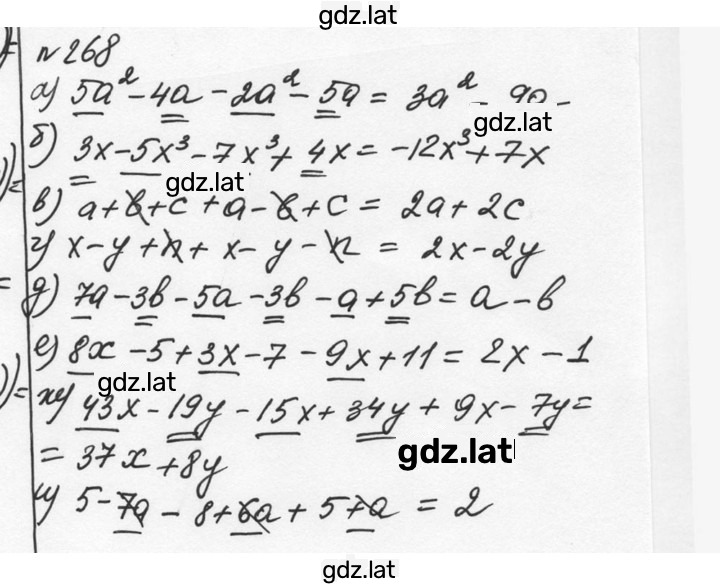 gdz.lat
№268
а) 5a² - 4a - 2a² - 5a = 3a² - 9a
gdz.lat
б) 3x - 5x³ - 7x³ + 4x = -12x³ + 7x
gdz.lat
в) a + b + c + a - b + c = 2a + 2c
г) x - y + n + x - y - n = 2x - 2y
д) 7a - 3b - 5a - 3b - a + 5b = a - b
е) 8x - 5 + 3x - 7 - 9x + 11 = 2x - 1
gdz.lat
ж) 43x - 19y - 15x + 34y + 9x - 7y =
= 37x + 8y
gdz.lat
и) 5 - 7a - 8 + 6a + 5 + a = 2
gdz.lat